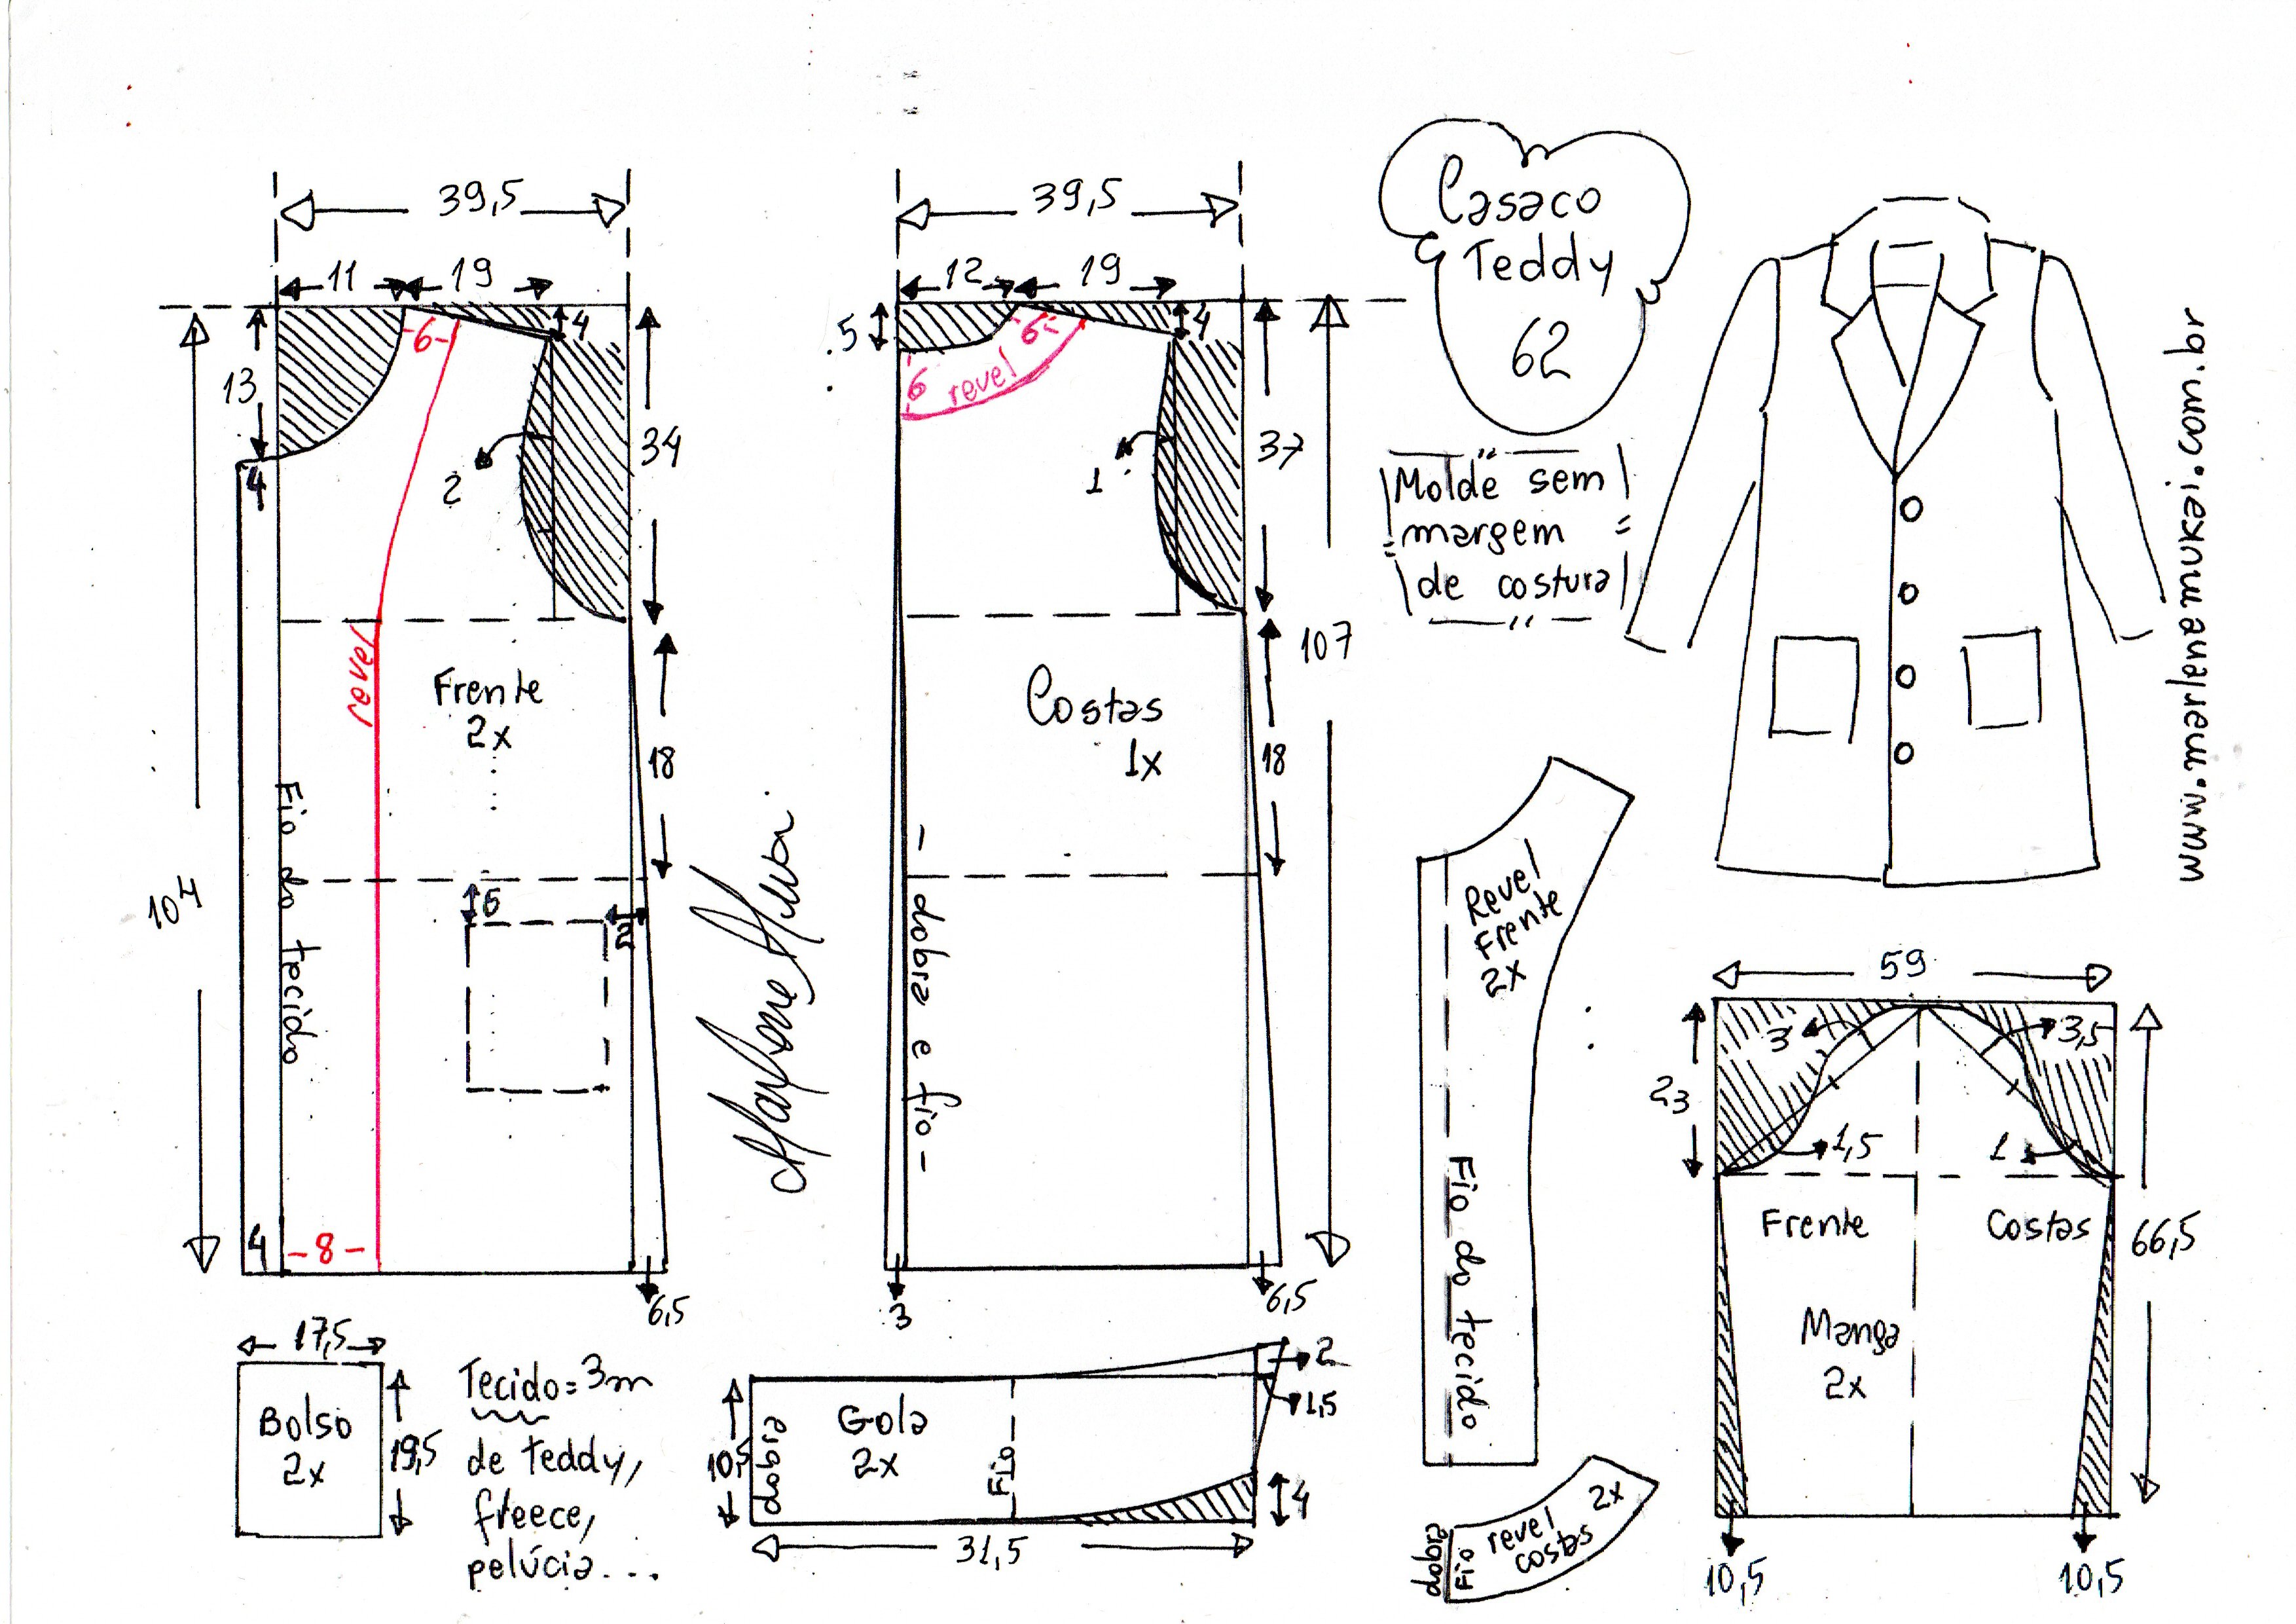 39,5
11
19
4
-6-
13
4
2
34
revel
Frente
2x
18
Fio do tecido
6
2
104
4
-8-
6,5
39,5
12
19
5
4
6
-6-
revel
1
37
107
Costas
1x
18
- dobra e fio -
3
6,5
Casaco
Teddy
62
Molde sem
margem
de costura
www.marlenemukai.com.br
Marlene Mukai
Revel
Frente
2x
Fio do tecido
59
3
3,5
23
1,5
1
Frente
Costas
66,5
Manga
2x
10,5
10,5
17,5
Bolso
2x
19,5
Tecido = 3m
de teddy,
freece,
pelúcia...
10,5
dobra
Gola
2x
Fio
2
1,5
4
31,5
dobra
Fio
revel
costas
2x